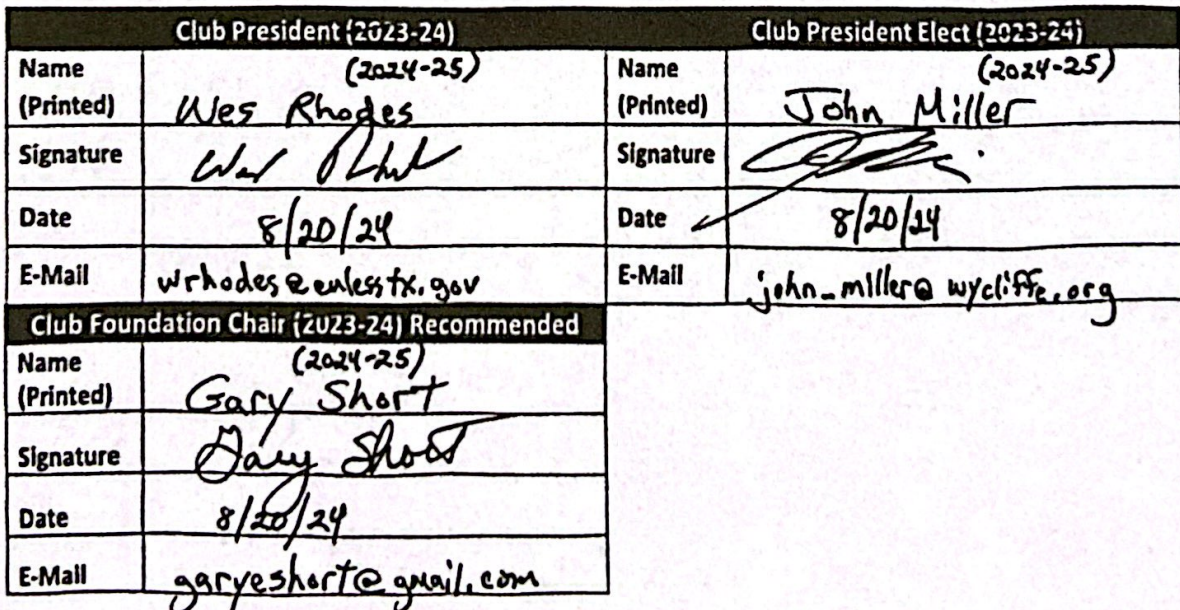 Club President (2023-24)
Name (2024-25)
(Printed) Wes Rhodes
Signature Wes Rhodes
Date 8/20/24
E-Mail wrhodes@eulesstx.gov
Club President Elect (2023-24)
Name (2024-25)
(Printed) John Miller
Signature
Date 8/20/24
E-Mail john_miller@wycliffe.org
Club Foundation Chair (2023-24) Recommended
Name (2024-25)
(Printed) Gary Short
Signature Gary Short
Date 8/20/24
E-Mail garyeshort@gmail.com